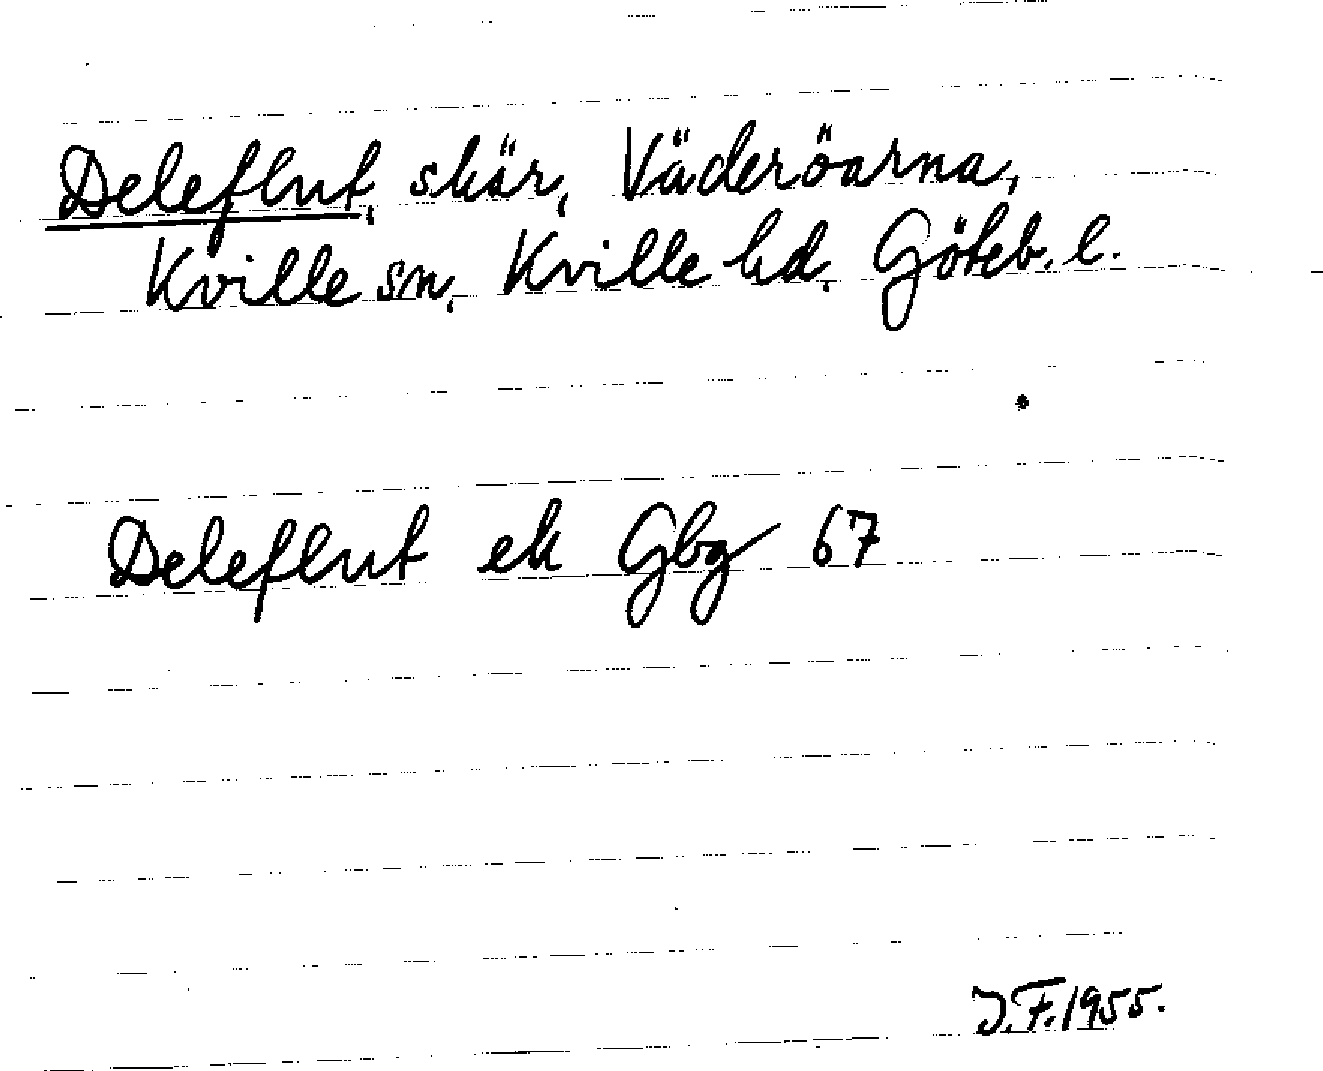 Deleflut, skär, Väderöarna,
Kville sn, Kville hd, Göteb. l.
Deleflut ek Gbg 67
J.F. 1955.